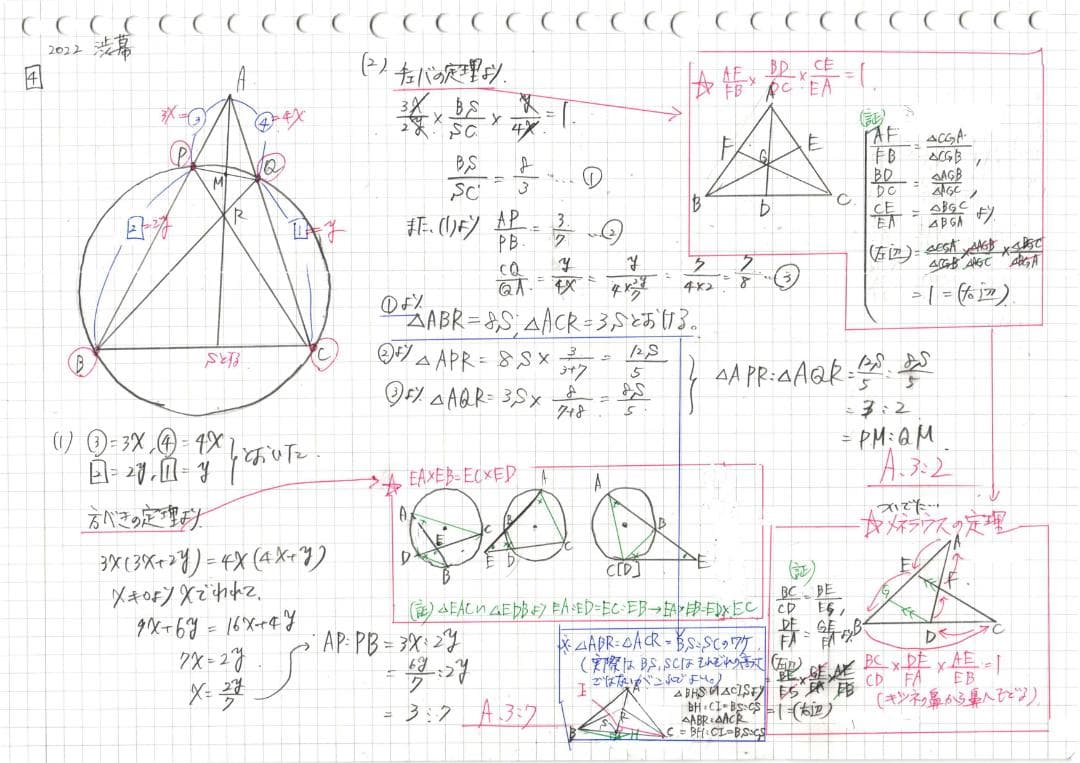 2022 渋幕
4
A
3x=③
④=4x
P
Q
M
R
2=2y
1=y
B
Sとする
C
(1) ③=3x, ④=4x
2=2y, 1=y
とおいた.
方べきの定理より.
3x(3x+2y)=4x(4x+y)
x≠0よりxでわれて.
9x+6y=16x+4y
7x=2y
x=2y/7
AP:PB=3x:2y
=6y/7:2y
=3:7
A.3:7
(2) チェバの定理より.
3x/2y × BS/SC × y/4x = 1.
BS/SC = 8/3 … ①
また.(1)より AP/PB = 3/7 … ②
CQ/QA = y/4x = y/(4×2y/7) = 7/(4×2) = 7/8 … ③
①より.
△ABR=8S, △ACR=3Sとおける。
②より △APR=8S×3/(3+7)=12S/5
③より △AQR=3S×8/(7+8)=8S/5
△APR:△AQR=12S/5:8S/5
=3:2
=PM:QM
A.3:2
☆ AF/FB × BD/DC × CE/EA = 1
A
F
E
G
B
D
C
(証)
AF/FB = △CGA/△CGB,
BD/DC = △AGB/△AGC,
CE/EA = △BGC/△BGA より
(左辺)=△CGA/△CGB × △AGB/△AGC × △BGC/△BGA
=1=(右辺)
☆ EA×EB=EC×ED
A
E
C
D
B
A
B
E
D
C
A
B
C[D]
E
(証) △EAC∽△EDBより EA:ED=EC:EB→EA×EB=ED×EC
※ △ABR:△ACR=BS:SCのワケ.
(実際はBS,SCはそれぞれの高さ
ではないが
I
A
R
S
B
H
C
△BHS∽△CISより
BH:CI=BS:CS
△ABR:△ACR
=BH:CI=BS:CS
ついでに…
☆メネラウスの定理
A
E
F
G
B
D
C
(証)
BC/CD = BE/EG,
DF/FA = GE/EAより
(左辺)
BE/EG × GE/EA × AE/EB
=1=(右辺)
BC/CD × DF/FA × AE/EB = 1
(キツネの鼻から鼻へでてる)